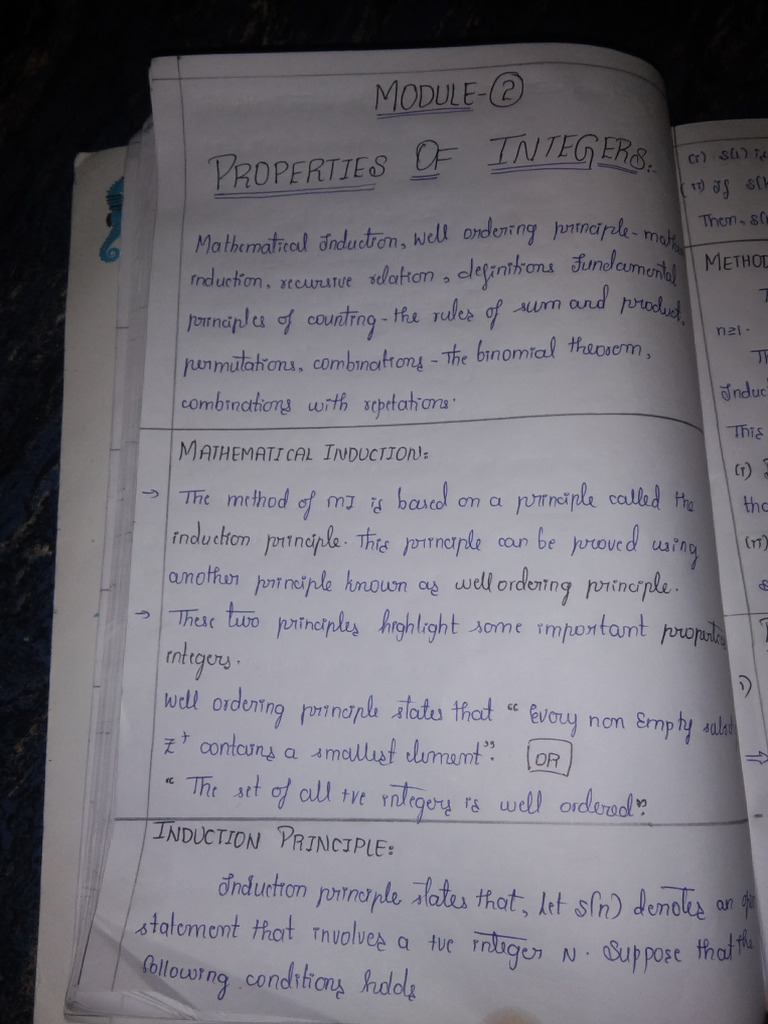 MODULE-②
PROPERTIES OF INTEGERS:-
Mathematical Induction, well ordering principle-
induction, recursive relation, definitions Fundamental
principles of counting - the rules of sum and product,
permutations, combinations - The binomial theorem,
combinations with repetations.
MATHEMATICAL INDUCTION:
→ The method of MI is based on a principle called the
induction principle. This principle can be proved using
another principle known as well ordering principle.
→ These two principles highlight some important
integers.
Well ordering principle states that " Every non Empty
Z⁺ contains a smallest element". OR
" The set of all +ve integers is well ordered".
INDUCTION PRINCIPLE:
Induction principle states that, let S(n) denotes an
statement that involves a +ve integer N. Suppose that the
following conditions holds
(i) S(1) is
(ii) If
Then, S(
METHOD
n≥1.
This
(i)
(ii)
i)
⇒